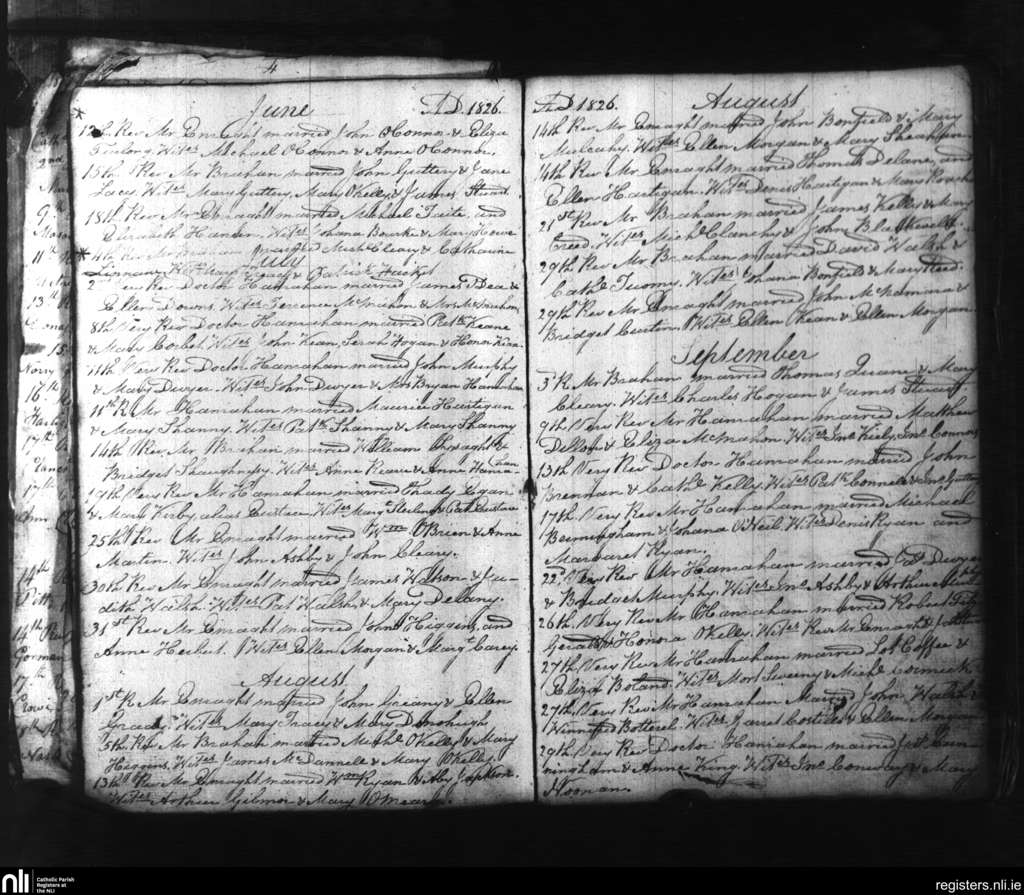 4
June A.D. 1826.
12th Rev Mr Enraght married John OConnor & Eliza
Furlong. Wits Michael OConnor & Anne OConnor.
15th Rev Mr Brahan married John Guttery & Jane
Lacy. Wits Mary Guttery, Mary OKelly & James Stuard.
18th Rev Mr Enraght married Michael Taite, and
Elizabeth Wits Johana Bourke & Mary Howe
4th Rev Mr Brahan married Michl Cleary & Catharine
July
Linnany Wits Mary & Patrick
2nd Very Rev Doctor Hanrahan married James ODea &
Ellen Downs. Wits Terence McMahon & Mrs McMahon
8th Very Rev Doctor Hanrahan married Patk Keane
& Mary Corbet. Wits John Kean Terah Hogan & Honor Keane
11th Very Rev Doctor Hanrahan married John Murphy
& Mary Dwyer. Wits John Dwyer & Mrs Bryan Hanrahan
11th R Mr Hanrahan married Maurice Hartigan
& Mary Shanny. Wits Patk Shanny & Mary Shanny
14th Rev Mr Brahan married William &
Bridget Shaughnesy. Wits Anne Keane & Anne
19th Very Rev Mr Hanrahan married Thady Egan
& Mary Kirby, alias Eustace. Wits Mary & Cath Eustace
25th Rev Mr Enraght married Wm OBrien & Anne
Martin. Wits John Ashby & John Cleary.
30th Rev Mr Enraght married James Watson & Ju-
dith Walsh. Wits Pat Walsh & Mary Delany.
31st Rev Mr Enraght married John Higgins, and
Anne Herbert. Wits Ellen Morgan & Margt Carey.
August
1st R Mr Enraght married John Greany & Ellen
Grady. Wits Mary Tracey & Mary Donohugh
5th Rev Mr Brahan married Michl OKelly & Mary
Higgins. Wits James McDannell & Mary OKelly.
13th Rev Mr Enraght married Wm Ryan & Aby Jackson.
Wits Arthur Gilmor & Mary OMeara.
A.D. 1826. August
14th Rev Mr Enraght married John Bonfield & Mary
Mulcahy. Wits Ellen Morgan & Mary Sheahan
14th Rev Mr Enraght married Thomas Delane, and
Ellen Hartigan. Wits Denis Hartigan & Mary Roach
21st Rev Mr Brahan married James Kelly & Mary
Creed. Wits Michl Clanchy & John
29th Rev Mr Brahan married David Walsh &
Cathe Tuomy. Wits Johana Bonfield & Mary Reed.
29th Rev Mr Enraght married John McNamara &
Bridget Curtin. Wits Ellen OKean & Ellen Morgan
September
3d R Mr Brahan married Thomas Quane & Mary
Cleary. Wits Charles Hogan & James Stuard
9th Very Rev Mr Hanrahan married Matthew
Dillon & Eliza McMahon. Wits Jno Kirby, Jno Connors
13th Very Rev Doctor Hanrahan married John
Brennan & Cathe Kelly. Wits Patk Connell & Jno Guttery
17th Very Rev Mr Hanrahan married Michael
Bermingham & Johana ONeil. Wits Denis Ryan and
Margaret Ryan.
22d Very Rev Mr Hanrahan married Dwyer
& Bridget Murphy. Wits Jno Ashby & Arthur
26th Very Rev Mr OHanrahan married Robert Fitz
Gerald & Honora OKelly. Wits Rev Mr Enraght &
27th Very Rev Mr Hanrahan married Lot Coffee &
Eliza Boland. Wits Mort Sweeny & Michl Cormick
27th Very Rev Mr Hanrahan Married John Walsh &
Winnifred Botterel. Wits Garret Costello & Ellen Morgan
29th Very Rev Doctor Hanrahan married Cun-
ningham & Anne King. Wits Jno Conway & Mary
Noonan.
nli
Catholic Parish
Registers at
the NLI
registers.nli.ie